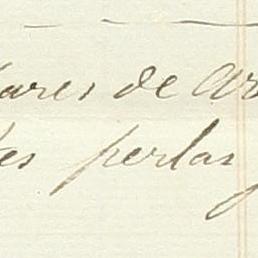 ares de ar
es perlas y